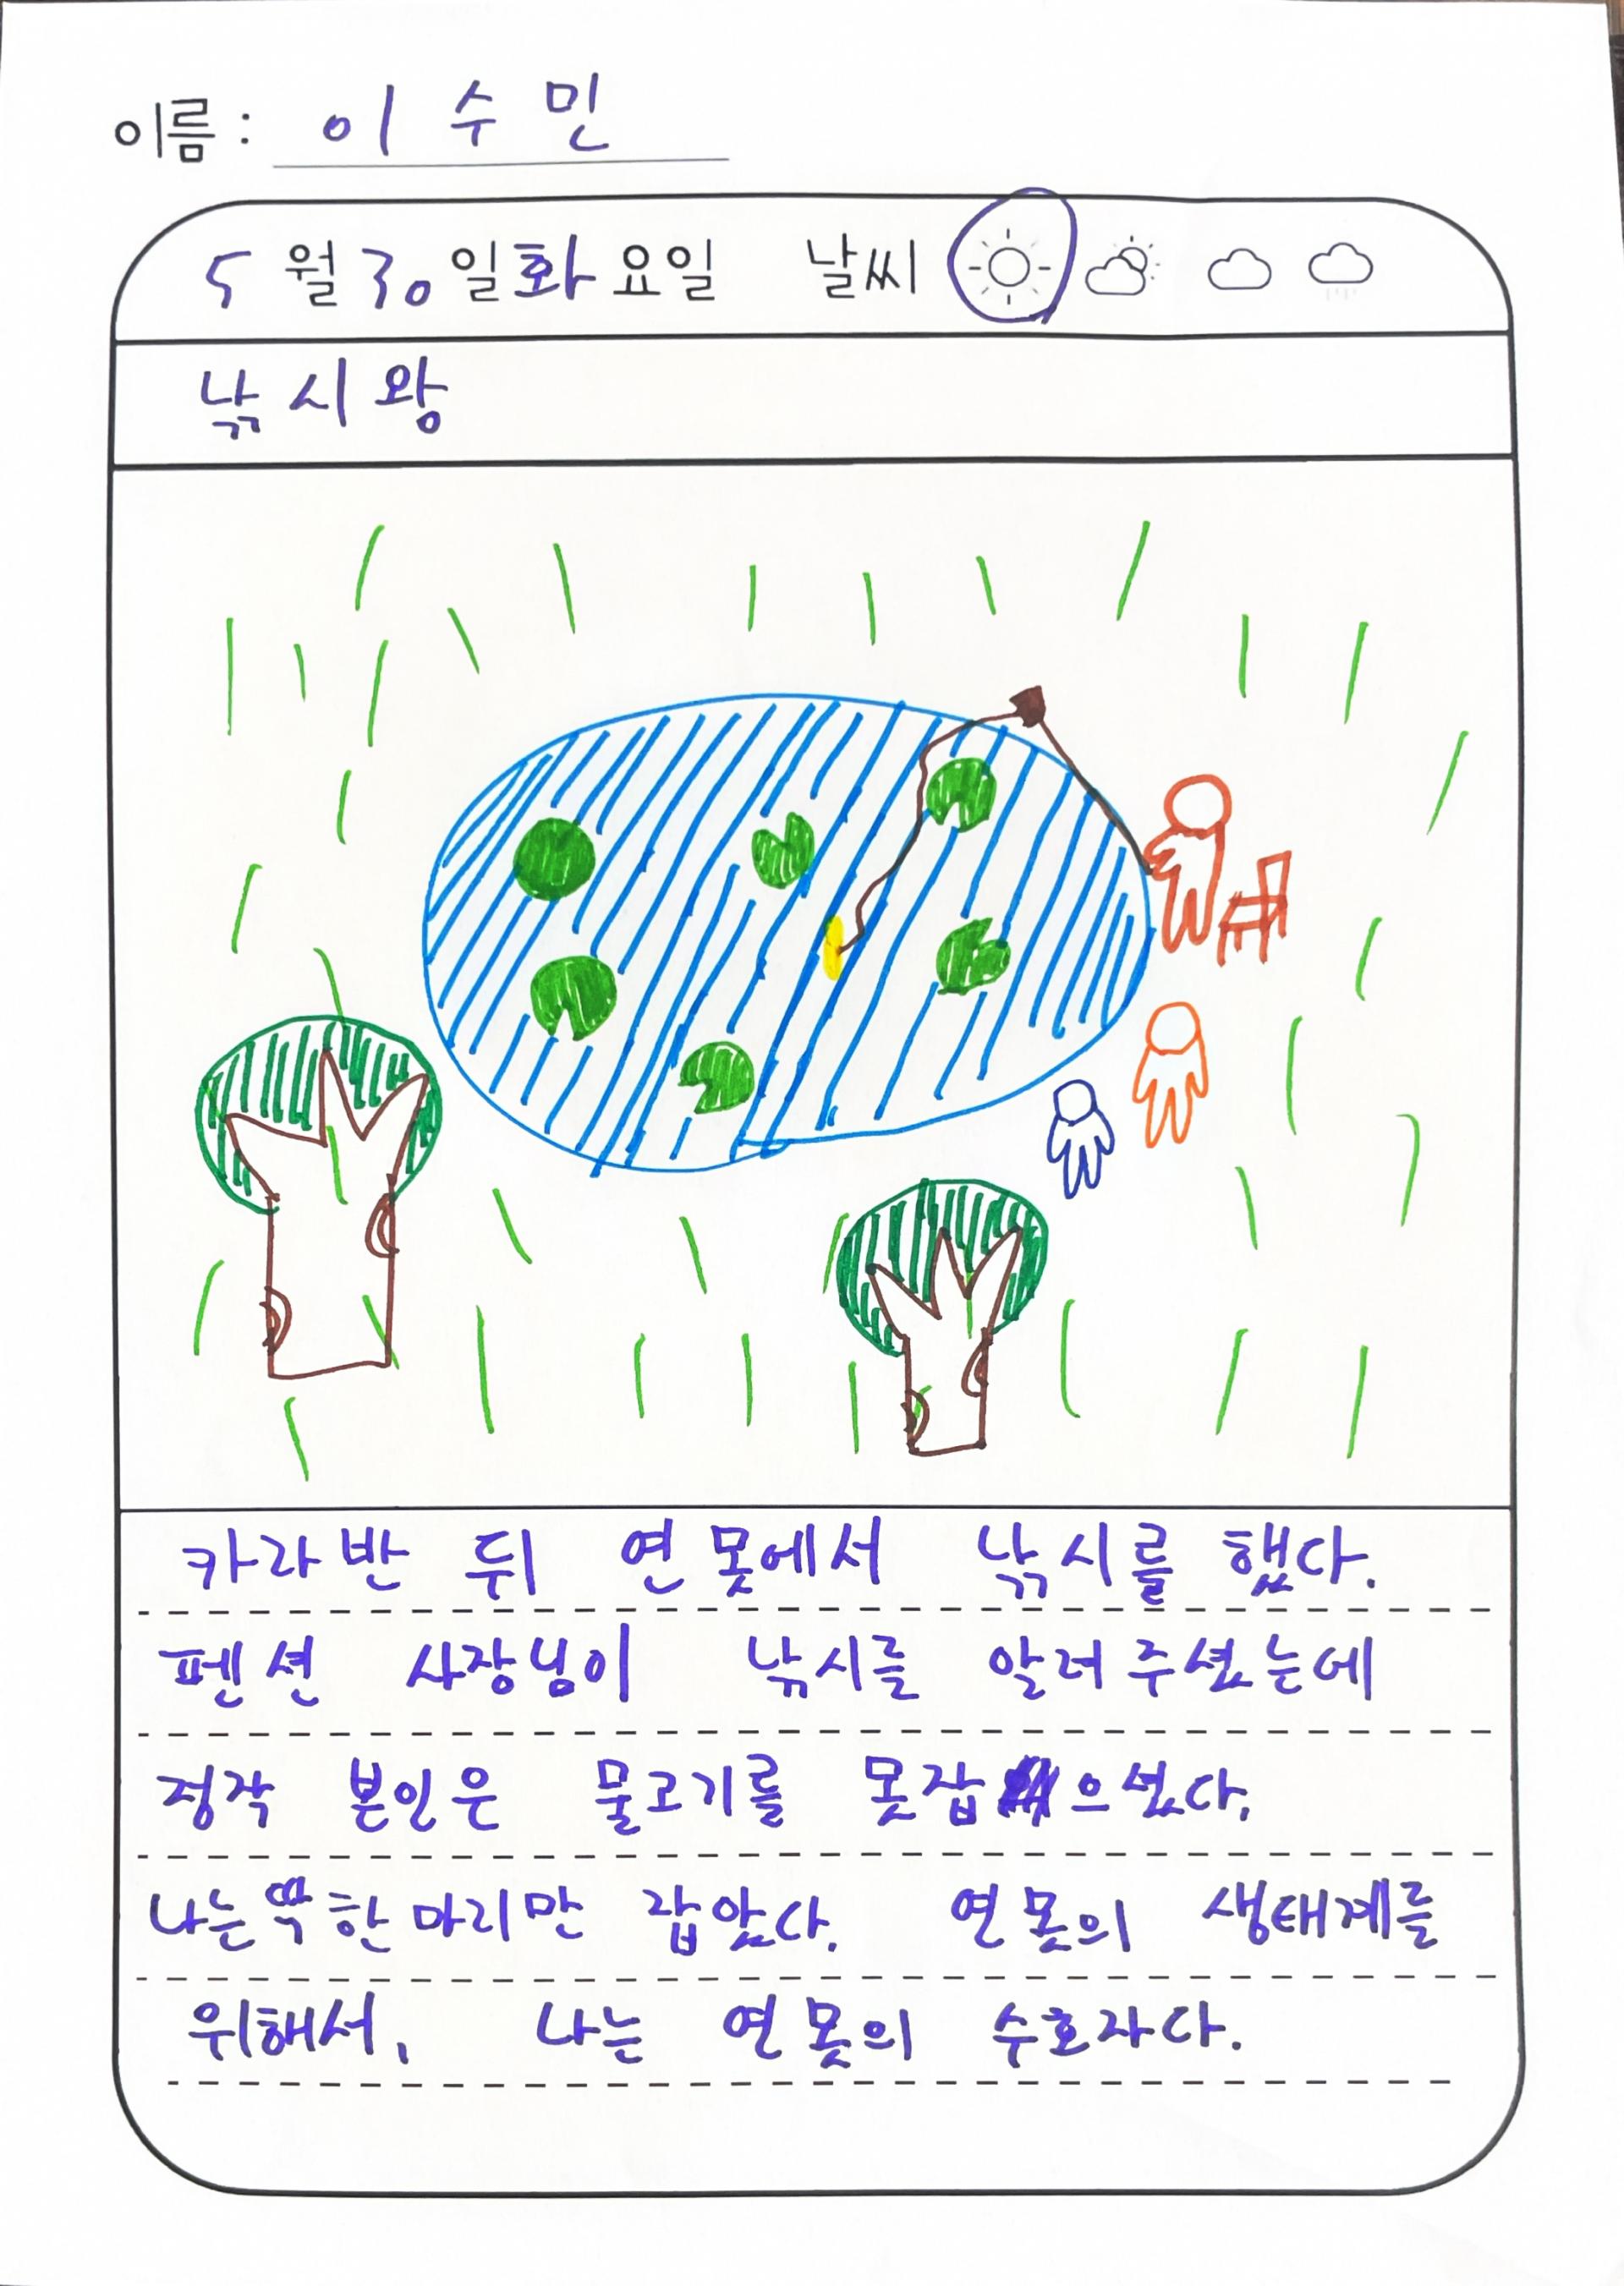 이름: 이수민
5월 30일 화요일 날씨
낚시왕
카라반 뒤 연못에서 낚시를 했다.
펜션 사장님이 낚시를 알려주셨는데
정작 본인은 물고기를 못잡으셨다.
나는 딱 한마리만 잡았다. 연못의 생태계를
위해서, 나는 연못의 수호자다.